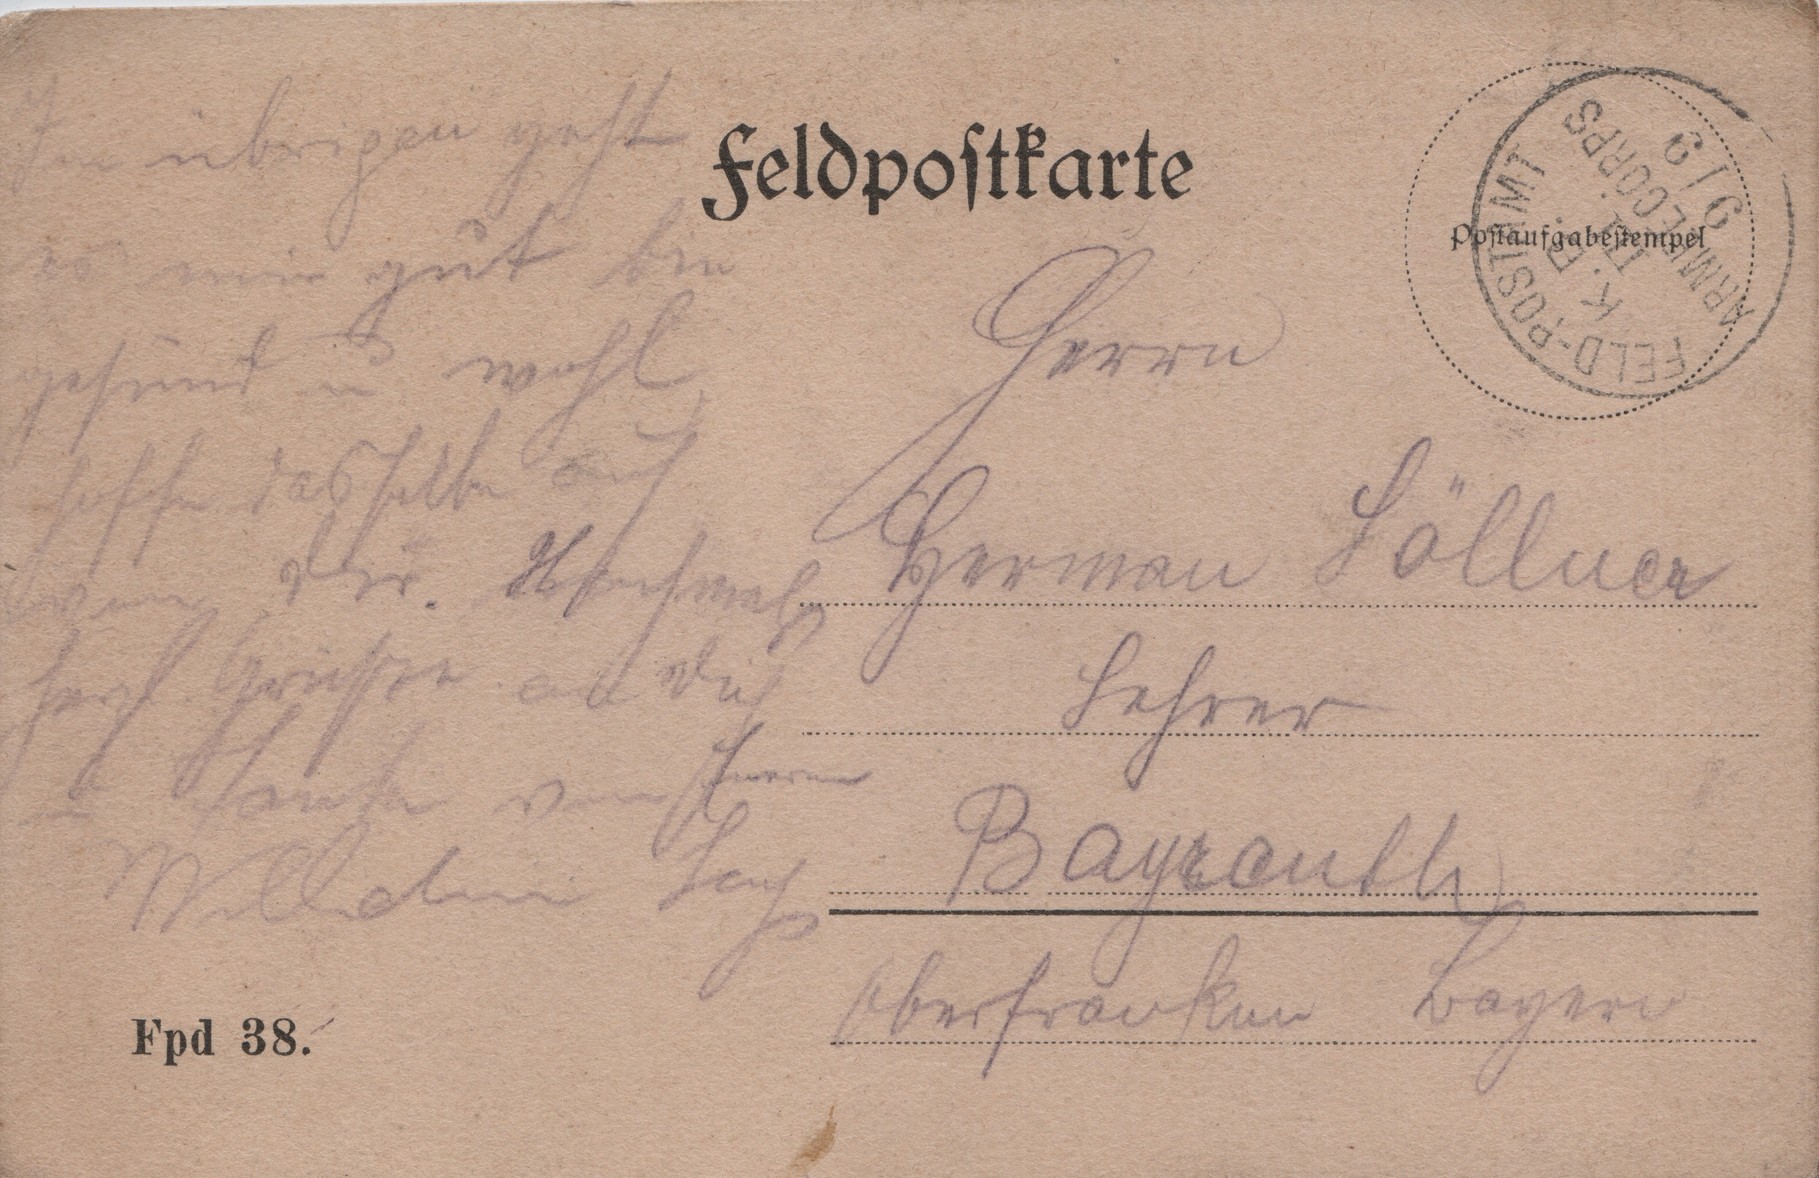 Feldpostkarte
Postaufgabestempel
FELD-POSTAMT
K. B.
III.
ARMEECORPS
9 / 9
Im übrigen geht
es mir gut bin
gesund u wohl
hoffe dasselbe auch
von Dir. Nochmals
herzl. Grüsse an Dich
u von Eueren
Wilhelm
Herrn
Herman Zöllner
Lehrer
Bayreuth
Oberfranken Bayern
Fpd 38.